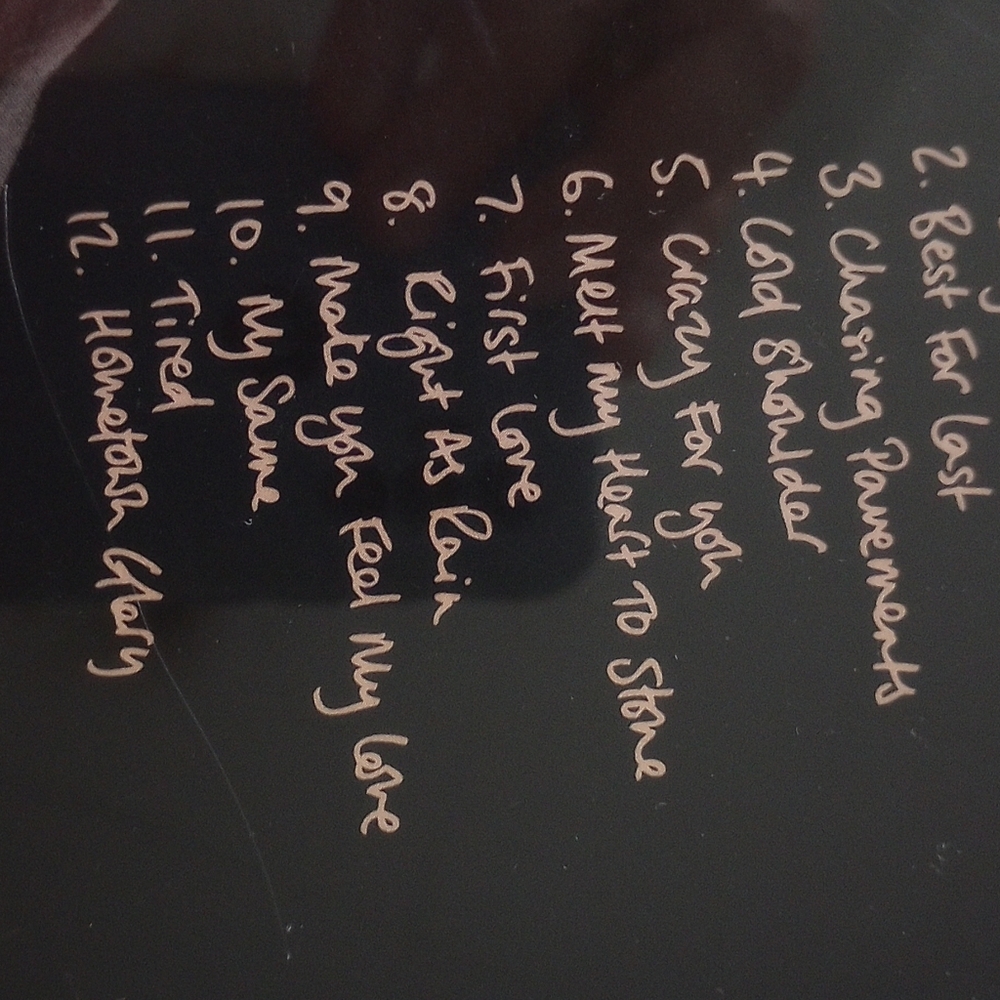 2. Best For Last
3. Chasing Pavements
4. Cold Shoulder
5. Crazy For You
6. Melt my Heart To Stone
7. First Love
8. Right As Rain
9. Make you Feel My Love
10. My Same
11. Tired
12. Hometown Glory